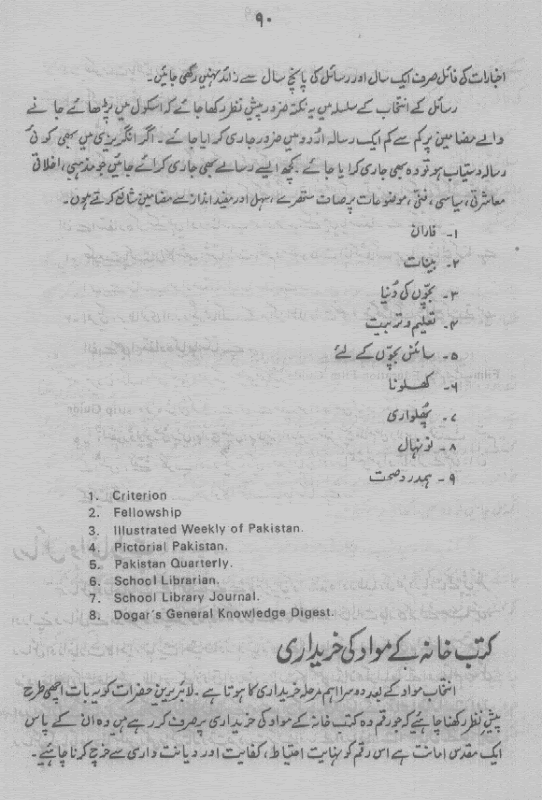 ۹۰
اخبارات کی فائل صرف ایک سال اور رسائل کی پانچ سال سے زائد نہیں رکھی جائیں۔
رسائل کے انتخاب کے سلسلہ میں یہ نکتہ ضرور پیشِ نظر رکھا جائے کہ اسکول میں پڑھائے جانے
والے مضامین پر کم سے کم ایک رسالہ اُردو میں ضرور جاری کرایا جائے۔ اگر انگریزی میں بھی کوئی
رسالہ دستیاب ہو تو وہ بھی جاری کرایا جائے۔ کچھ ایسے رسالے بھی جاری کرائے جائیں جو مذہبی، اخلاقی
معاشرتی، سیاسی، فنّی، موضوعات پر صاف ستھرے، سہل اور مفید انداز سے مضامین شائع کرتے ہوں۔
۱۔ فاران
۲۔ بینات
۳۔ بچّوں کی دُنیا
۴۔ تعلیم و تربیت
۵۔ سائنس بچّوں کے لئے
۶۔ کھلونا
۷۔ پھُلواری
۸۔ نونہال
۹۔ ہمدرد صحت
1. Criterion
2. Fellowship
3. Illustrated Weekly of Pakistan.
4. Pictorial Pakistan.
5. Pakistan Quarterly.
6. School Librarian.
7. School Library Journal.
8. Dogar's General Knowledge Digest.
کتب خانہ کے مواد کی خریداری
انتخاب مواد کے بعد دوسرا اہم مرحلہ خریداری کا ہوتا ہے۔ لائبریرین حضرات کو یہ بات اچھی طرح
پیشِ نظر رکھنا چاہئیے کہ جو رقم وہ کتب خانہ کے مواد کی خریداری پر صرف کر رہے ہیں وہ ان کے پاس
ایک مقدس امانت ہے اس رقم کو نہایت احتیاط، کفایت اور دیانت داری سے خرچ کرنا چاہئیے۔